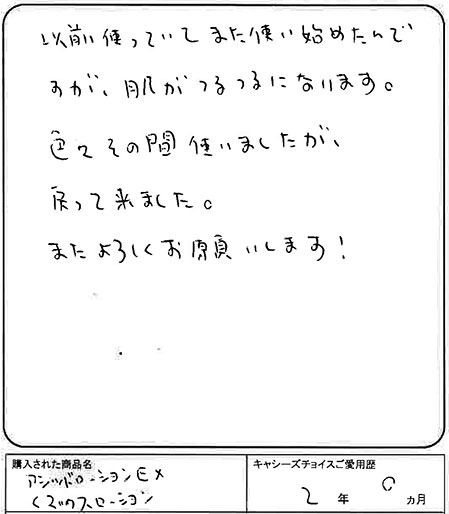 以前使っていてまた使い始めたんで
すが、肌がつるつるになります。
色々その間使いましたが、
戻って来ました。
またよろしくお願いします!
購入された商品名
アシッドローションEX
くまのスローション
キャシーズチョイスご愛用歴
2年0ヵ月